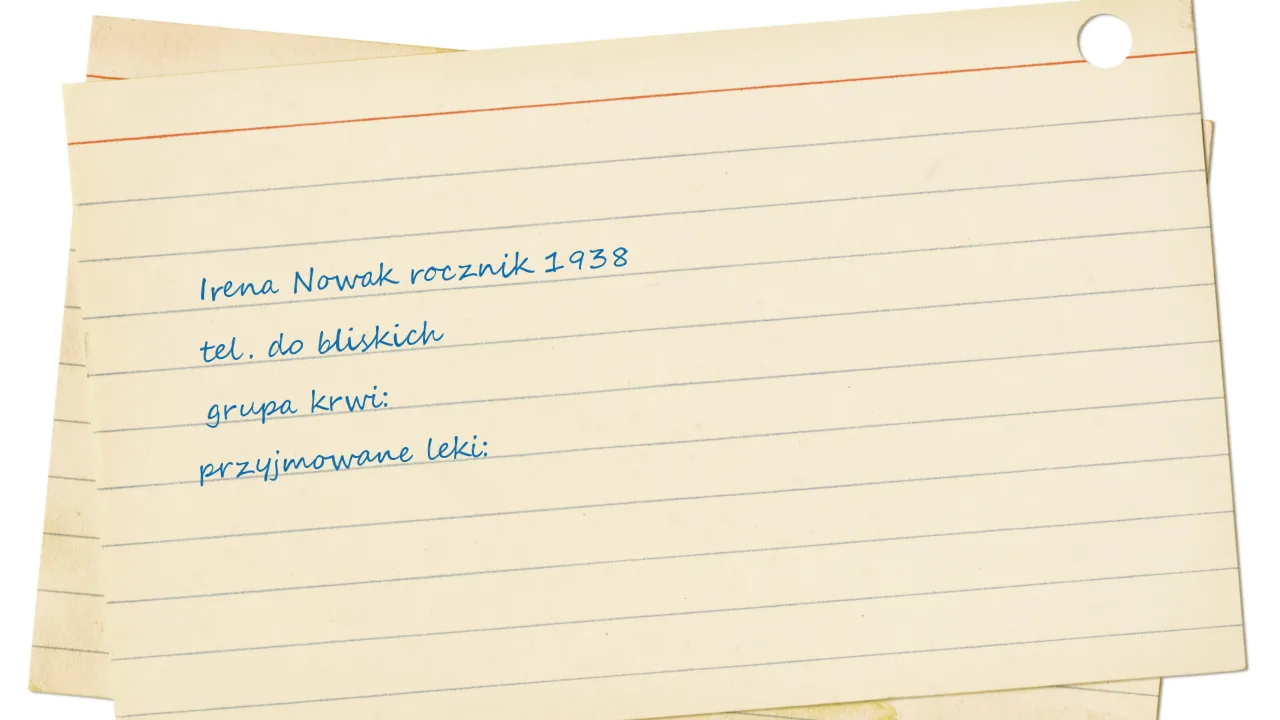 Irena Nowak rocznik 1938
tel. do bliskich
grupa krwi:
przyjmowane leki: